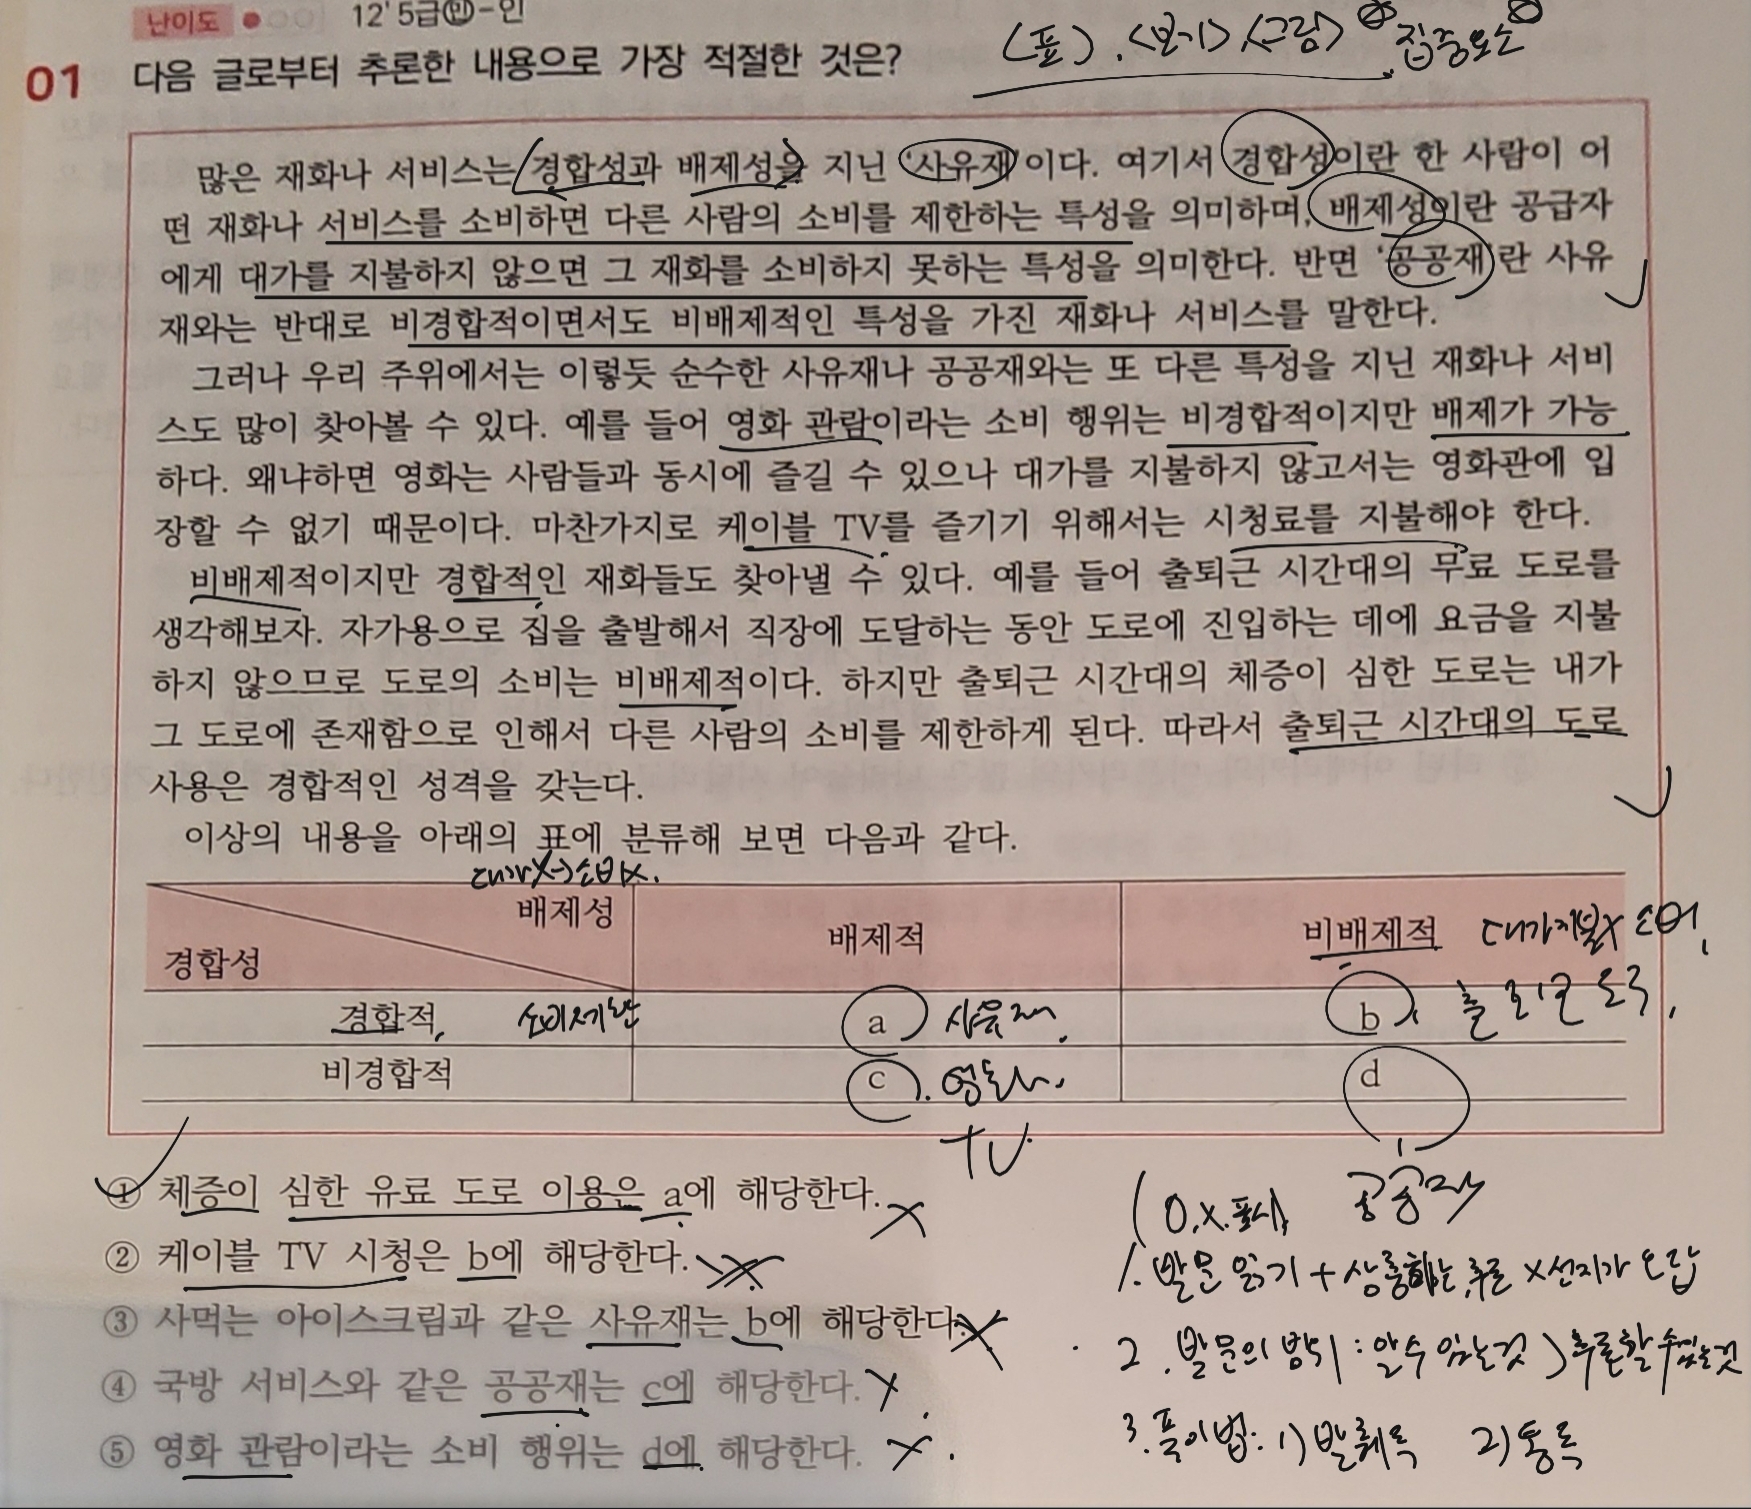 난이도 ● ○○ 12' 5급㉫-인
01 다음 글로부터 추론한 내용으로 가장 적절한 것은?
(표), <보기>, <그림> 집중요소
많은 재화나 서비스는 경합성과 배제성을 지닌 '사유재'이다. 여기서 경합성이란 한 사람이 어
떤 재화나 서비스를 소비하면 다른 사람의 소비를 제한하는 특성을 의미하며, 배제성이란 공급자
에게 대가를 지불하지 않으면 그 재화를 소비하지 못하는 특성을 의미한다. 반면 '공공재'란 사유
재와는 반대로 비경합적이면서도 비배제적인 특성을 가진 재화나 서비스를 말한다.
그러나 우리 주위에서는 이렇듯 순수한 사유재나 공공재와는 또 다른 특성을 지닌 재화나 서비
스도 많이 찾아볼 수 있다. 예를 들어 영화 관람이라는 소비 행위는 비경합적이지만 배제가 가능
하다. 왜냐하면 영화는 사람들과 동시에 즐길 수 있으나 대가를 지불하지 않고서는 영화관에 입
장할 수 없기 때문이다. 마찬가지로 케이블 TV를 즐기기 위해서는 시청료를 지불해야 한다.
비배제적이지만 경합적인 재화들도 찾아낼 수 있다. 예를 들어 출퇴근 시간대의 무료 도로를
생각해보자. 자가용으로 집을 출발해서 직장에 도달하는 동안 도로에 진입하는 데에 요금을 지불
하지 않으므로 도로의 소비는 비배제적이다. 하지만 출퇴근 시간대의 체증이 심한 도로는 내가
그 도로에 존재함으로 인해서 다른 사람의 소비를 제한하게 된다. 따라서 출퇴근 시간대의 도로
사용은 경합적인 성격을 갖는다.
이상의 내용을 아래의 표에 분류해 보면 다음과 같다.
대가X→소비X.
배제성
경합성
배제적
비배제적 대가지불X
경합적, 소비제한 a 사유재 b
비경합적 c 영화, d
TV
공공재
① 체증이 심한 유료 도로 이용은 a에 해당한다.
② 케이블 TV 시청은 b에 해당한다.
③ 사먹는 아이스크림과 같은 사유재는 b에 해당한다.
④ 국방 서비스와 같은 공공재는 c에 해당한다.
⑤ 영화 관람이라는 소비 행위는 d에 해당한다.
O, X 표시
1. 발문 읽기 + X선지가 오답
2. 발문의 방식 : 알 수 있는 것 > 추론할 수 있는 것
3. 풀이법: 1) 발췌독 2) 통독